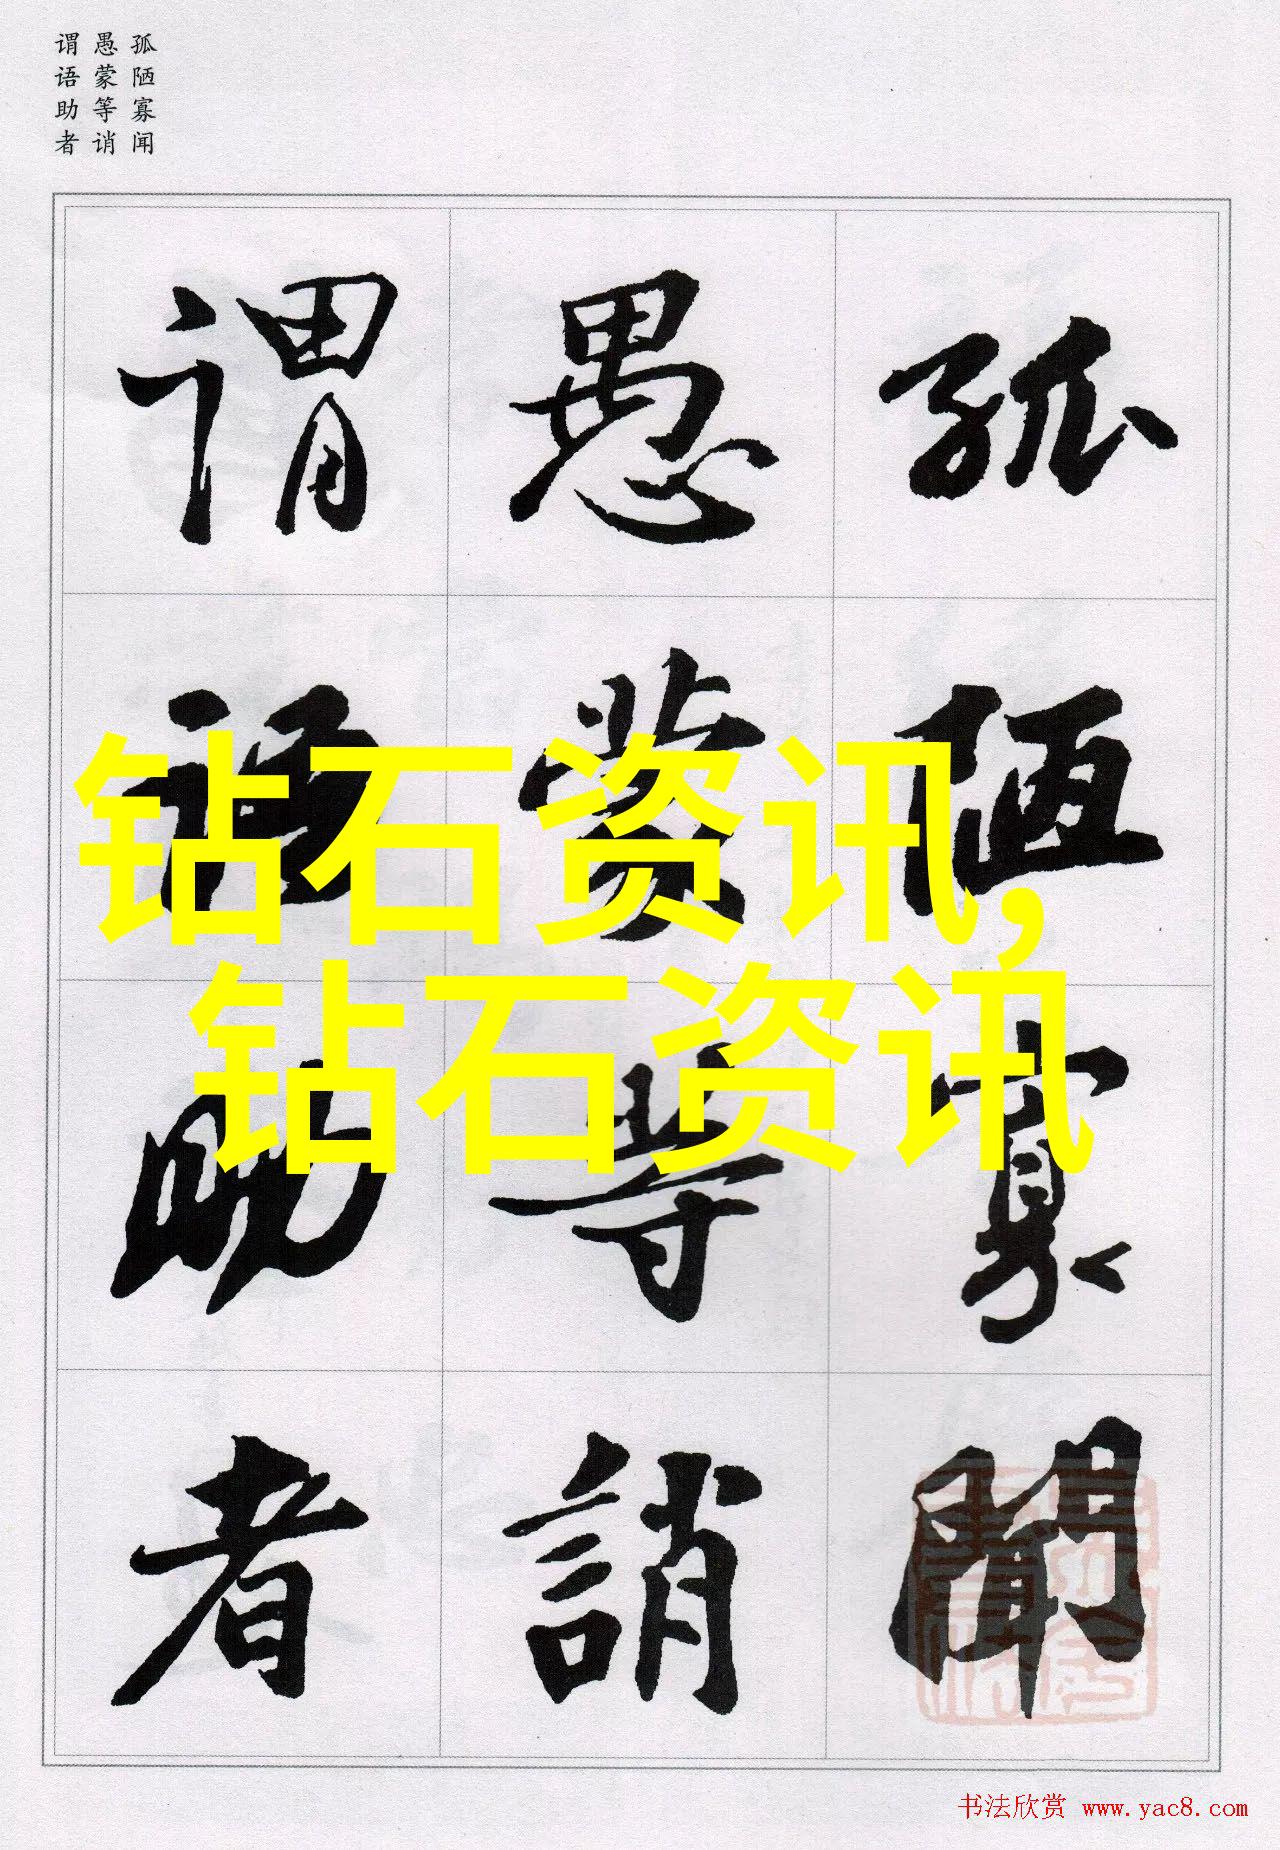 孤陋寡闻
愚蒙等诮
谓语助者
孤陋寡聞
愚蒙等誚
谓语助者
钻石资讯,
钻石资讯
书法欣赏 www.yac8.com